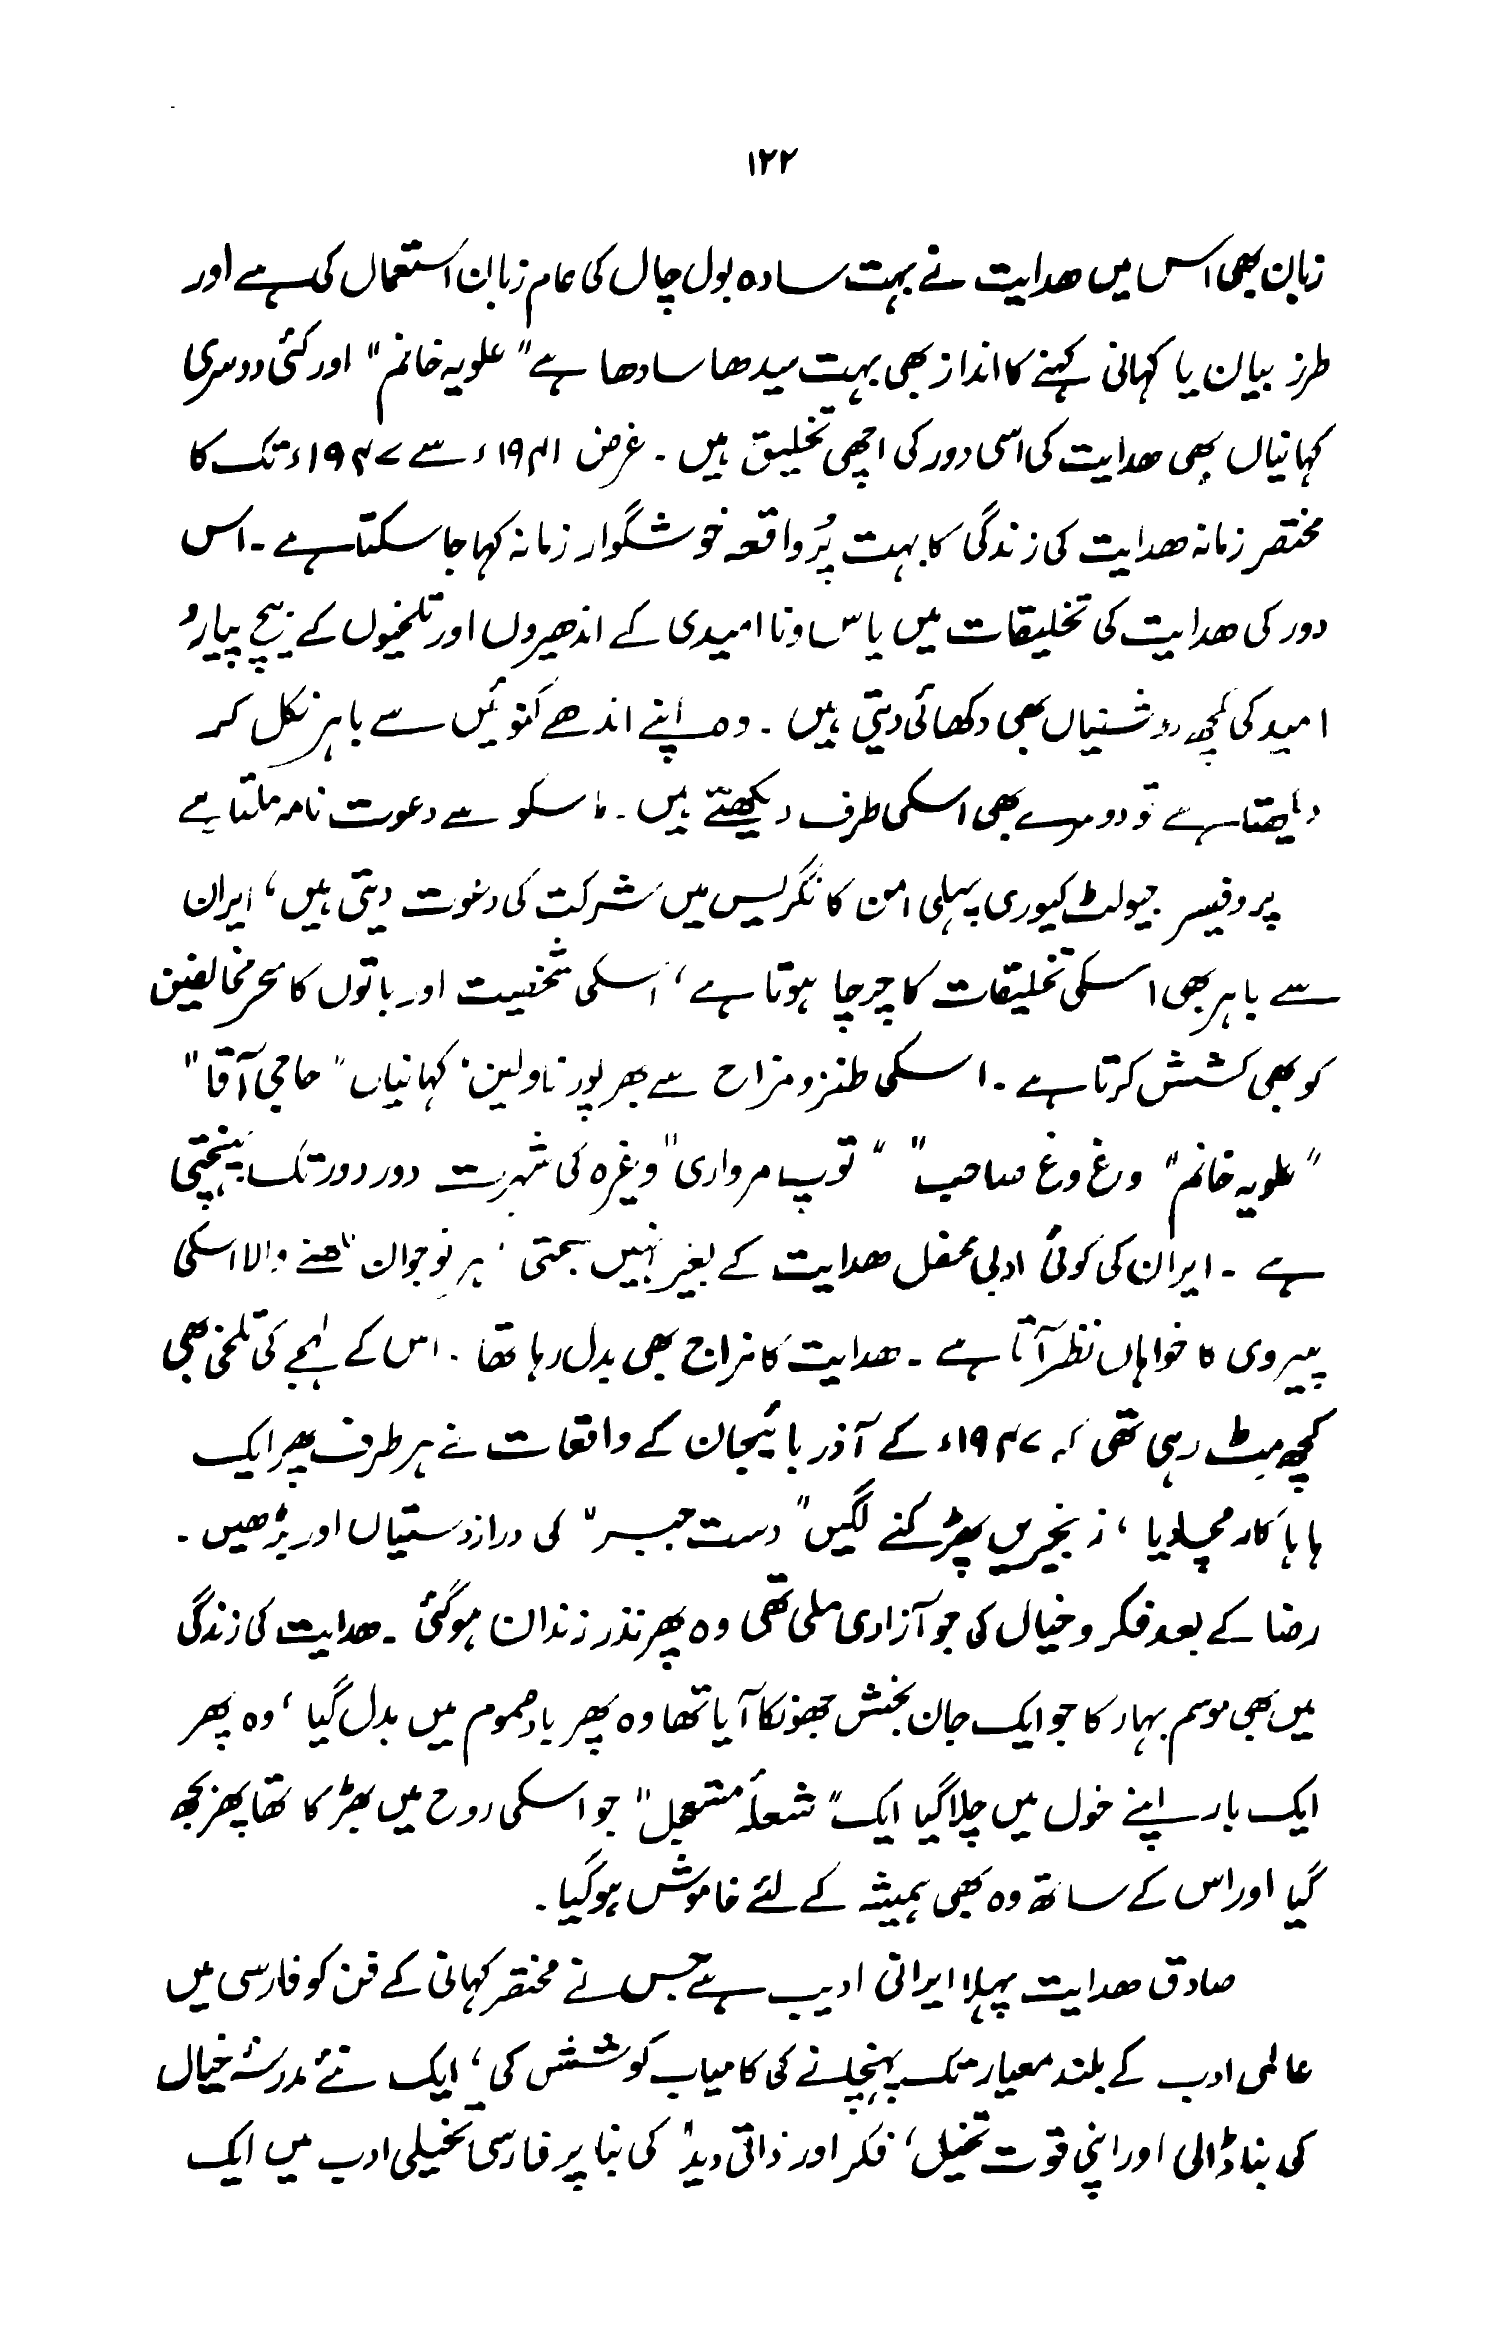 ۱۲۲
زبان بھی اس میں ھدایت نے بہت سادہ بول چال کی عام زبان استعمال کی ہے اور
طرز بیان یا کہانی کہنے کا انداز بھی بہت سیدھا سادھا ہے "علویہ خانم" اور کئی دوسری
کہانیاں بھی ھدایت کی اسی دور کی اچھی تخلیق ہیں ۔ غرض ۱۹۴۱ء سے ۱۹۴۷ء تک کا
مختصر زمانہ ھدایت کی زندگی کا بہت پُر واقعہ خوشگوار زمانہ کہا جا سکتا ہے ۔ اس
دور کی ھدایت کی تخلیقات میں یاس و نا امیدی کے اندھیروں اور تلخیوں کے بیچ پیار و
امید کی کچھ روشنیاں بھی دکھائی دیتی ہیں ۔ وہ اپنے اندھے کنوئیں سے باہر نکل کر
دیکھتا ہے تو دوسرے بھی اسکی طرف دیکھتے ہیں ۔ ماسکو سے دعوت نامہ ملتا ہے
پروفیسر جیولٹ کیوری پہلی امن کانگریس میں شرکت کی دعوت دیتی ہیں ، ایران
سے باہر بھی اسکی تخلیقات کا چرچا ہوتا ہے ، اسکی شخصیت اور باتوں کا سحر مخالفین
کو بھی کشش کرتا ہے ۔ اسکی طنز و مزاح سے بھرپور ناولیں ، کہانیاں "حاجی آقا"
"علویہ خانم" وغ وغ صاحب" "توپ مرواری" وغیرہ کی شہرت دور دور تک پہنچتی
ہے ۔ ایران کی کوئی ادبی محفل ھدایت کے بغیر نہیں سجتی ، ہر نوجوان لکھنے والا اسکی
پیروی کا خواہاں نظر آتا ہے ۔ ھدایت کا مزاج بھی بدل رہا تھا ۔ اس کے لہجے کی تلخی بھی
کچھ مٹ رہی تھی کہ ۱۹۴۷ء کے آذر بائیجان کے واقعات نے ہر طرف پھر ایک
ہاہا کار مچا دیا ، زنجیریں پھڑکنے لگیں "دست جبر" کی دراز دستیاں اور بڑھیں ۔
رضا کے بعد فکر و خیال کی جو آزادی ملی تھی وہ پھر نذر زندان ہو گئی ۔ ھدایت کی زندگی
میں بھی موسم بہار کا جو ایک جان بخش جھونکا آیا تھا وہ پھر باد صموم میں بدل گیا ، وہ پھر
ایک بار اپنے خول میں چلا گیا ایک "شعلۂ مشتعل" جو اسکی روح میں بھڑکا تھا پھر بجھ
گیا اور اس کے ساتھ وہ بھی ہمیشہ کے لئے خاموش ہو گیا ۔
صادق ھدایت پہلا ایرانی ادیب ہے جس نے مختصر کہانی کے فن کو فارسی میں
عالمی ادب کے بلند معیار تک پہنچانے کی کامیاب کوشش کی ، ایک نئے مدرسۂ خیال
کی بنا ڈالی اور اپنی قوت تخیل ، فکر اور ذاتی دید کی بنا پر فارسی تخیلی ادب میں ایک